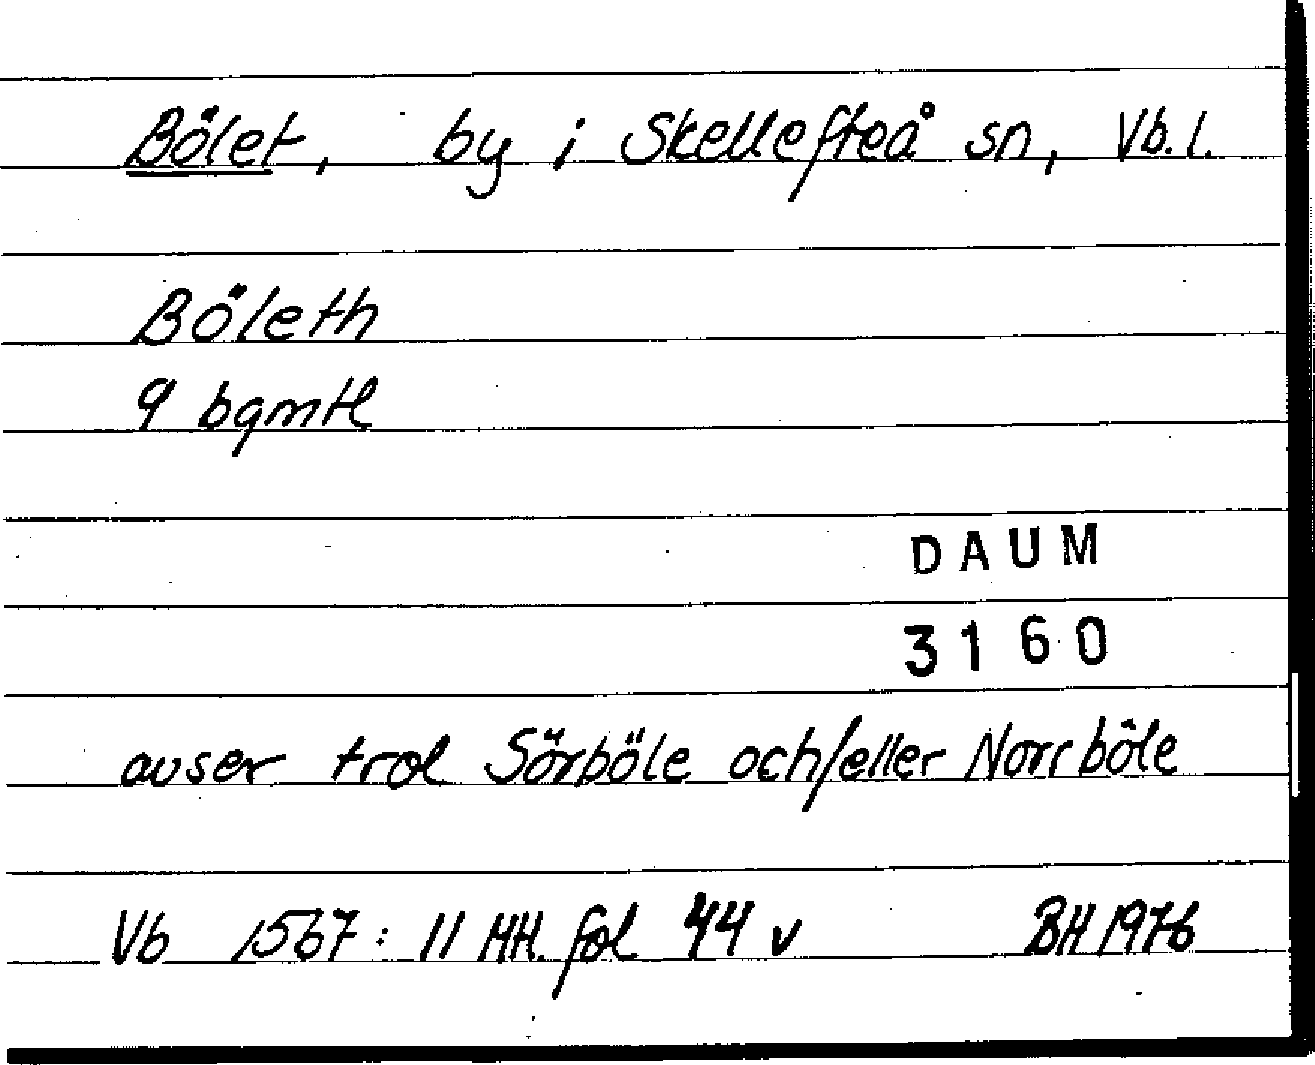 Bölet, by i Skellefteå sn, Vb. l.
Böleth
9 bgmtl
DAUM
3160
avser trol Sörböle och/eller Norrböle
Vb 1567: 11 HH. fol 44 v BH 1976